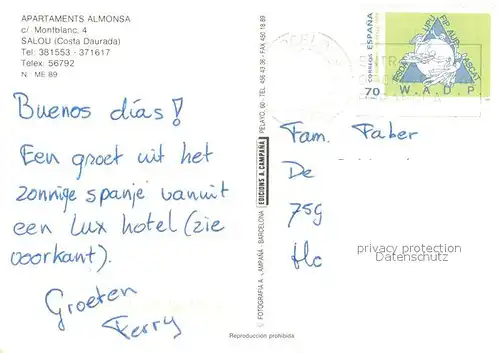 APARTAMENTS ALMONSA
c/. Montblanc, 4
SALOU (Costa Daurada)
Tel: 381553 - 371617
Telex: 56792
N. ME 89
Buenos días!
Een groet uit het
zonnige spanje vanuit
een lux hotel (zie
voorkant).
Groeten
Ferry
EDICIONS A. CAMPAÑA
PELAYO, 60 - TEL. 456 43 36 - FAX 450 18 89
© FOTOGRAFIA A. CAMPAÑA - BARCELONA
Reproducción prohibida
CORREOS ESPAÑA
70
UPU FIP AIJP
IFSDA ASCAT
W.A.D.P
Fam. Faber
De
759
Hc
privacy protection
Datenschutz